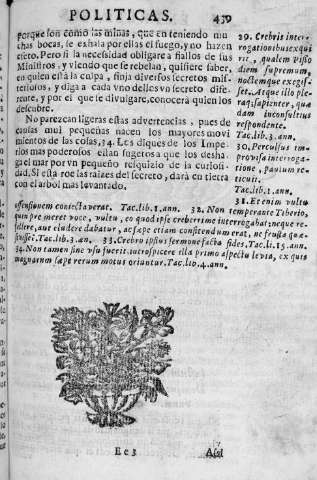 POLITICAS. 439
porque son como las minas, que en teniendo mu
chas bocas, se exhala por ellas el fuego, y no hazen
efeto. Pero si la necessidad obligare a fiallos de sus
Ministros, y viendo que se rebelan, quisiere saber,
en quien està la culpa, finja diversos secretos mis-
teriosos, y diga a cada vno dellos vn secreto dife-
rente, y por el que se divulgare, conocerà quien los
descubre.
No parezcan ligeras estas advertencias, pues de
causas mui pequeñas nacen los mayores movi
mientos de las cosas, 34. Los diques de los Impe-
rios mas poderosos estan sugetos a que los desha-
ga el mar por vn pequeño resquizio de la curiosi-
dad. Si esta roe las raizes del secreto, darà en tierra
con el arbol mas levantado.
29. Crebris inter-
rogationibus exqui
rit, qualem Piso
diem supremum,
noctemque exegis-
set. Atque illo ple-
raq; sapienter, quæ
dam inconsultius
respondente.
Tac. lib. 3. ann.
30. Perculsus im-
provisa interroga-
tione, paulum re-
ticuit.
Tac. lib. 1. ann.
31. Etenim vultu
offensionem coniectaverat. Tac. lib. 1. ann. 32. Non temperante Tiberio,
quin premeret voce, vultu, eo quod ipse creberrime interrogabat: neque re-
fellere, aut eludere dabatur, ac sæpe etiam confitendum erat, ne frustra quæ-
sivisset. Tac. lib. 3. an. 33. Crebro ipsius sermone facta fides. Tac. li. 15. ann.
34. Non tamen sine vsu fuerit introspicere illa primo aspectu levia, ex quis
magnarum sæpe rerum motus oriantur. Tac. lib. 4. ann.
Ee 3